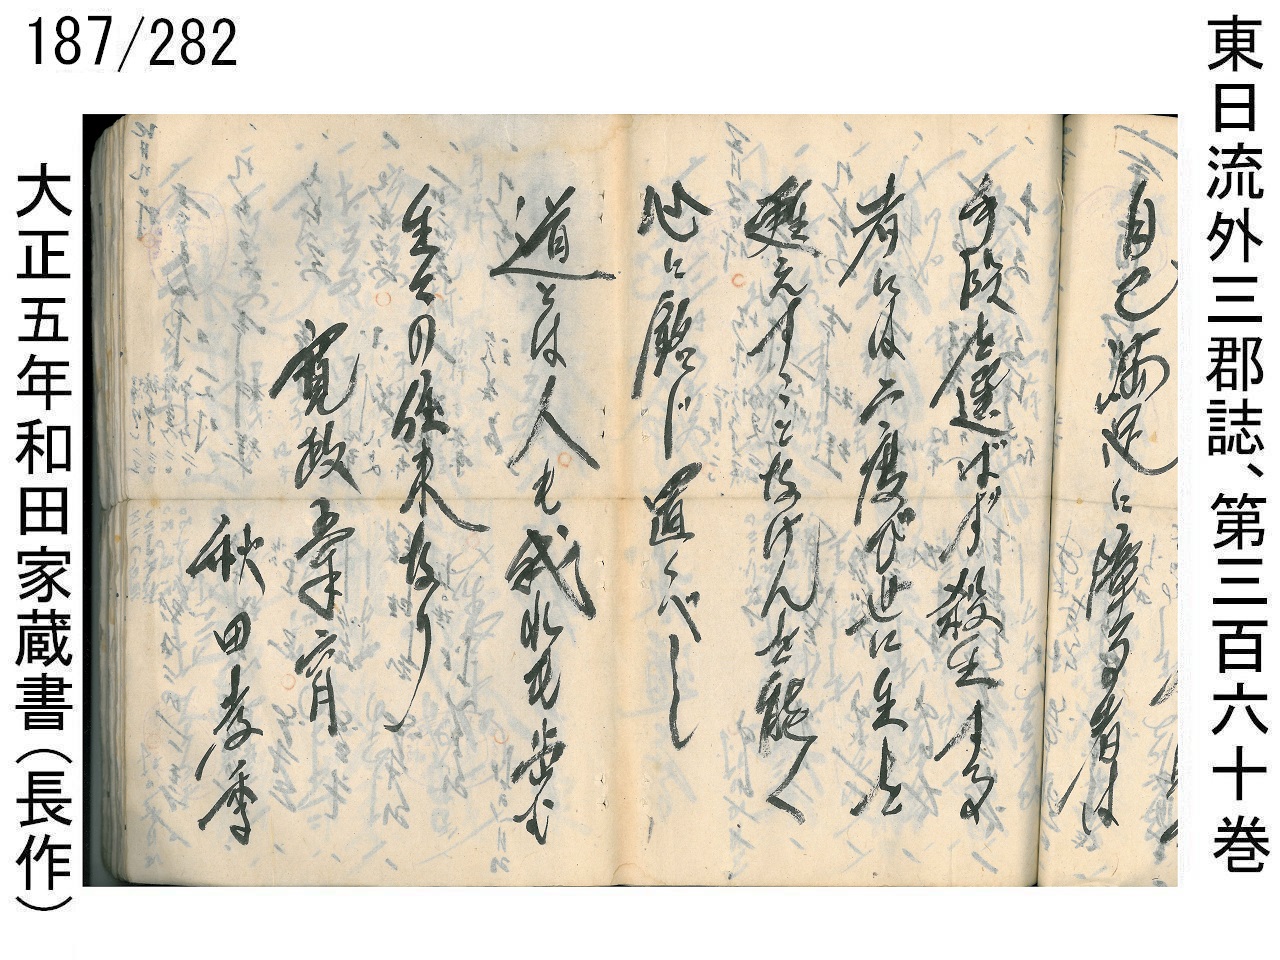 187/282
東日流外三郡誌、第三百六十巻
自己満足に障る者は
手段を選ばず殺生する
者には二度び世に生を
甦えすことなけんを能く
心に銘じ置くべし
道とは人も我れも歩む
生々の従来なり
寛政五年六月
秋田孝季
大正五年和田家蔵書（長作）